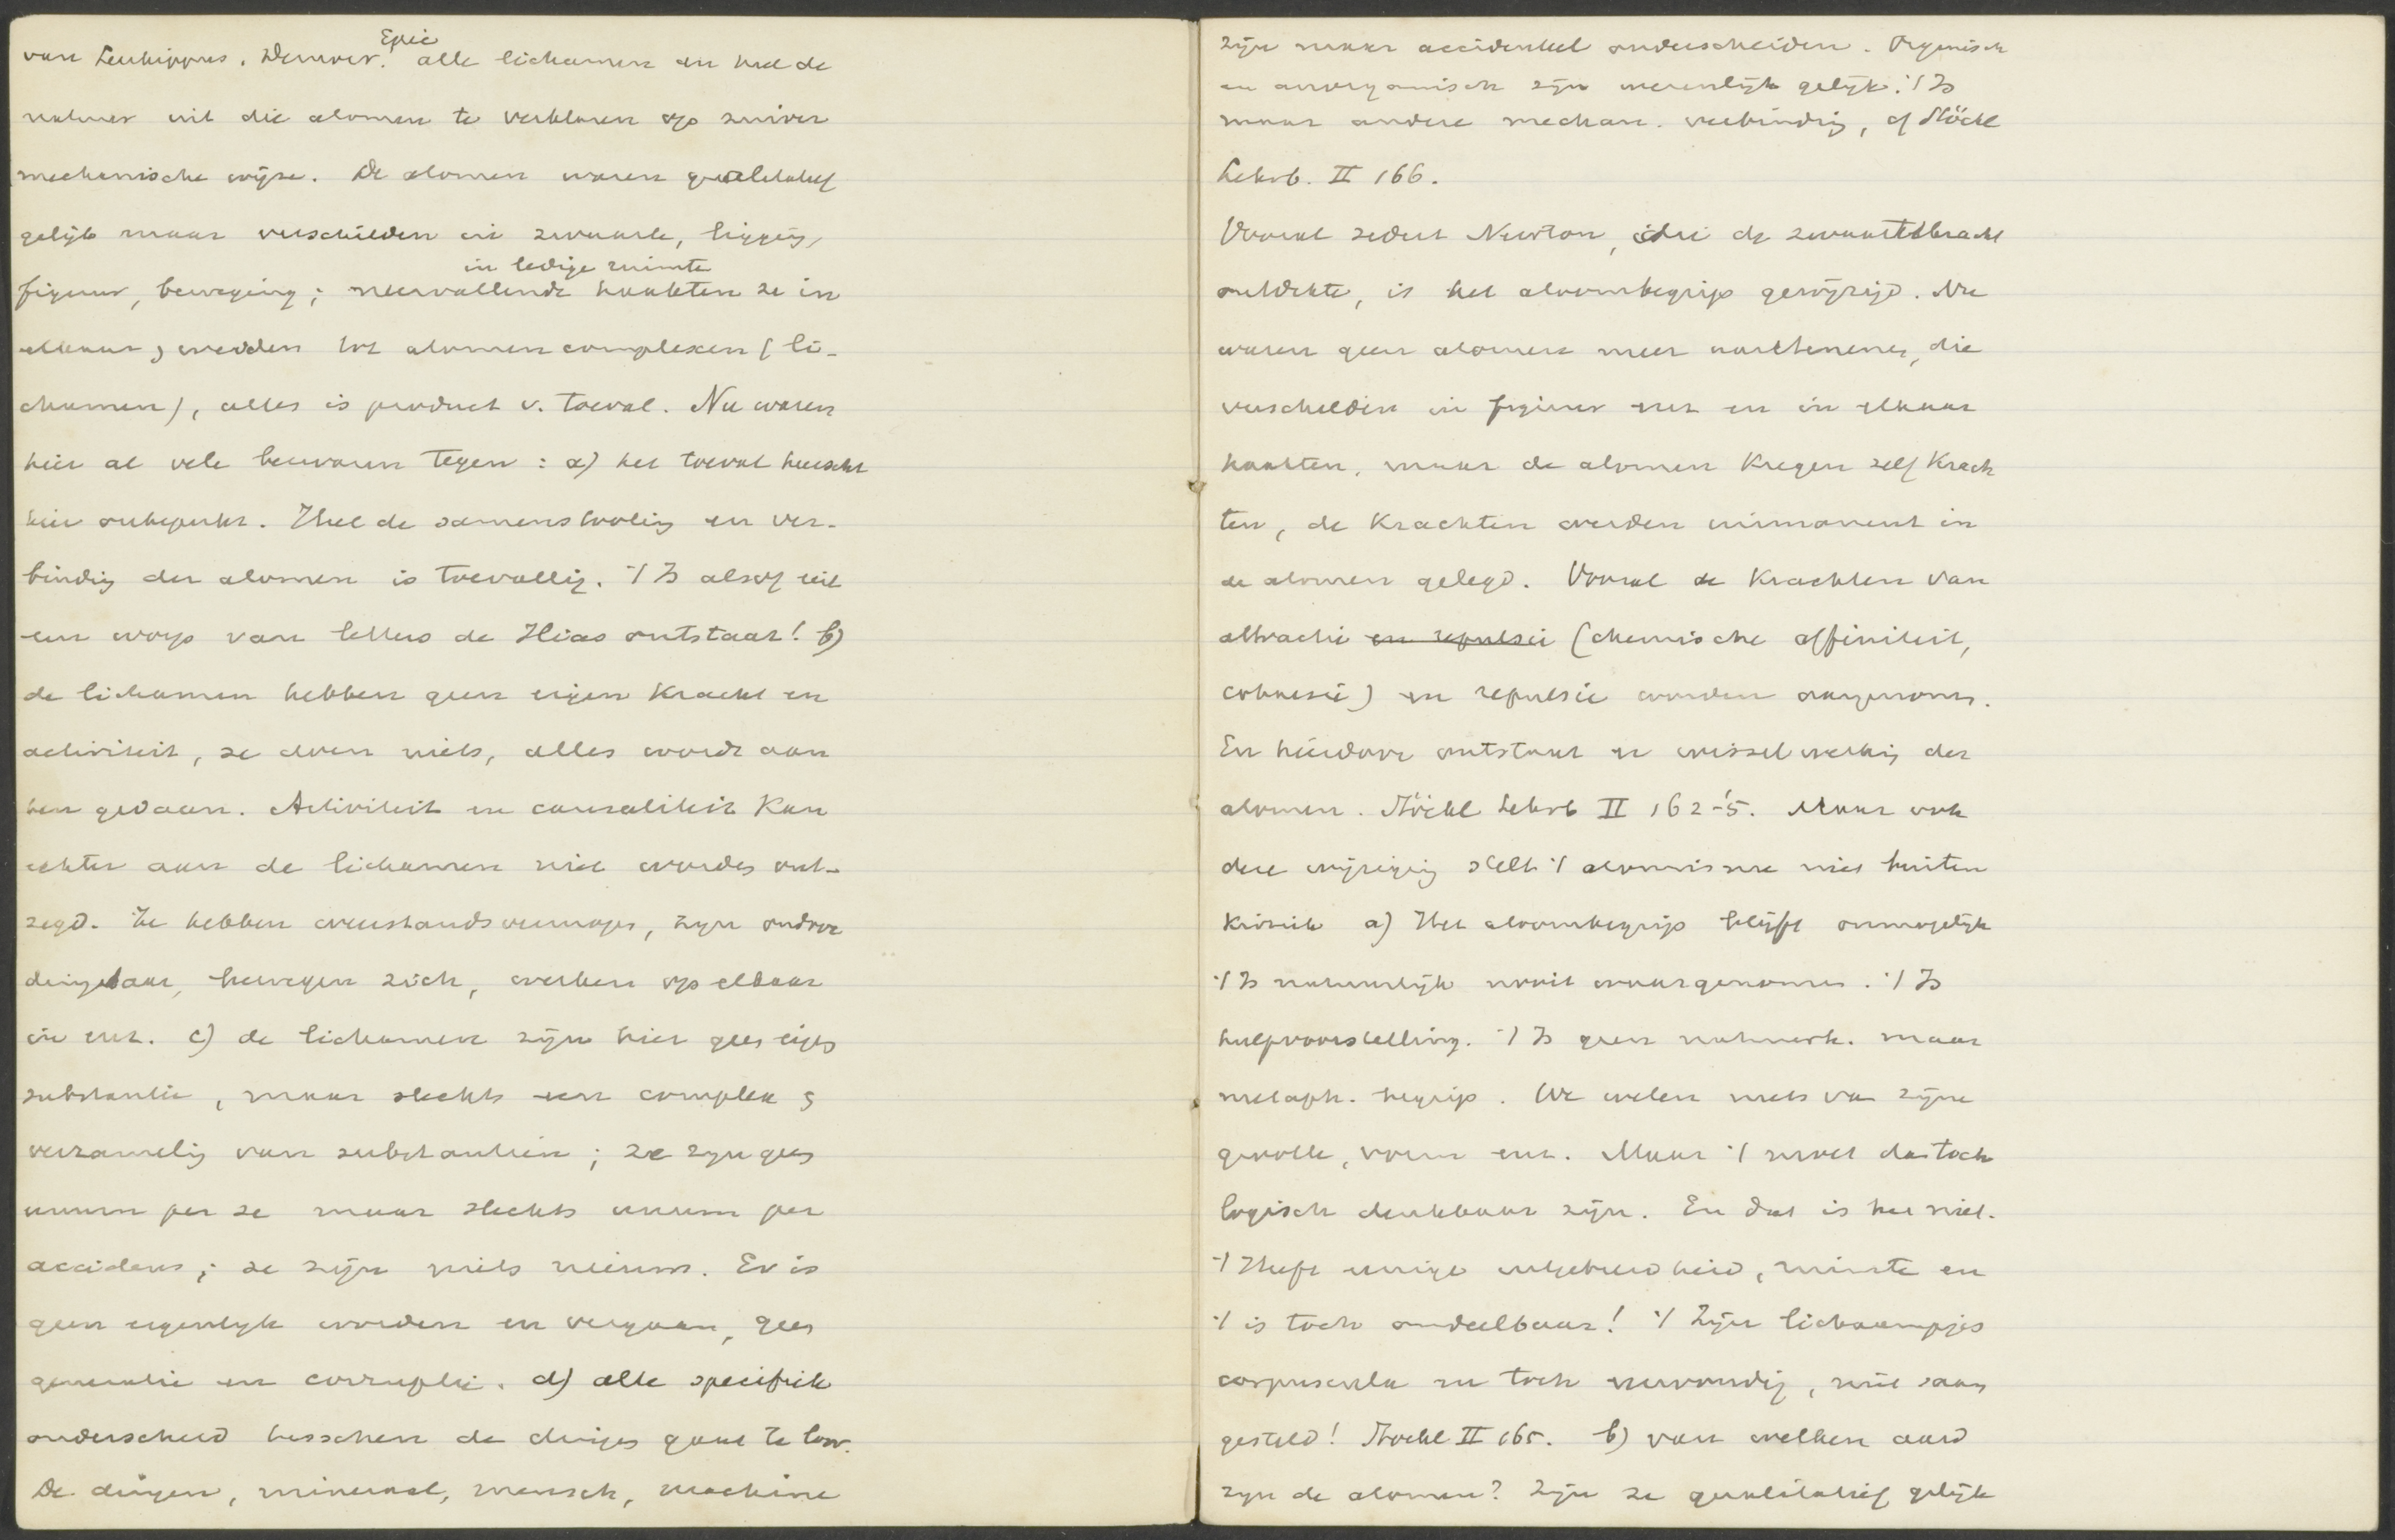 Epic
van Leukippus, Democr. alle lichamen en heel de
natuur uit die atomen te verklaren op zuiver
mechanische wijze. De atomen waren qualitatief
gelijk maar verschilden in zwaarte, ligging,
in ledige ruimte
figuur, beweging; neervallende haakten ze in
elkaar, werden tot atomencomplexen (li-
chamen), alles is product v. toeval. Nu waren
hier al vele bezwaren tegen: a) het toeval heerscht
hier onbeperkt. Heel de samenstelling en ver-
binding der atomen is toevallig. 't Is alsof uit
een worp van letters de Ilias ontstaat! b)
de lichamen hebben geen eigen kracht en
activiteit, ze doen niets, alles wordt aan
hen gedaan. Activiteit en causaliteit kan
echter aan de lichamen niet worden ont-
zegd. Ze hebben weerstandsvermogen, zijn ondoor
dringbaar, bewegen zich, werken op elkaar
in enz. c) de lichamen zijn hier geen eigen
substantie, maar slechts een complex,
verzameling van substantien; ze zijn geen
unum per se maar slechts unum per
accidens; ze zijn niets nieuws. Er is
geen eigenlijk worden en vergaan, geen
generatie en corruptie. d) alle specifiek
onderscheid tusschen de dingen gaat te loor.
De dingen, mineraal, mensch, machine
zijn maar accidenteel onderscheiden. Organisch
en anorganisch zijn wezenlijk gelijk. 't Is
maar andere mechan. verbinding, cf Stöckl
Lehrb. II 166.
Vooral sedert Newton, die de zwaartekracht
ontdekte, is het atoombegrip gewijzigd. Nu
waren geen atomen meer aan te nemen, die
verschilden in figuur enz en in elkaar
haakten, maar de atomen kregen zelf krach
ten, de krachten werden immanent in
de atomen gelegd. Vooral de krachten van
attractie en repulsie (chemische affiniteit,
cohaesie) en repulsie worden aangenomen.
En hierdoor ontstaat er wisselwerking der
atomen. Stöckl Lehrb II 162-'5. Maar ook
deze wijziging stelt 't atomisme niet buiten
kritiek a) Het atoombegrip blijft onmogelijk
't Is natuurlijk nooit waargenomen. 't Is
hulpvoorstelling. 't Is geen natuurk. maar
metaph. begrip. We weten niets van zijne
grootte, vorm enz. Maar 't moet dan toch
logisch denkbaar zijn. En dat is het niet.
't Heeft eenige uitgebreidheid, ruimte en
't is toch ondeelbaar! 't Zijn lichaampjes
corpuscula en toch eenvoudig, niet saam
gesteld! Stöckl II 165. b) van welken aard
zijn de atomen? Zijn ze qualitatief gelijk